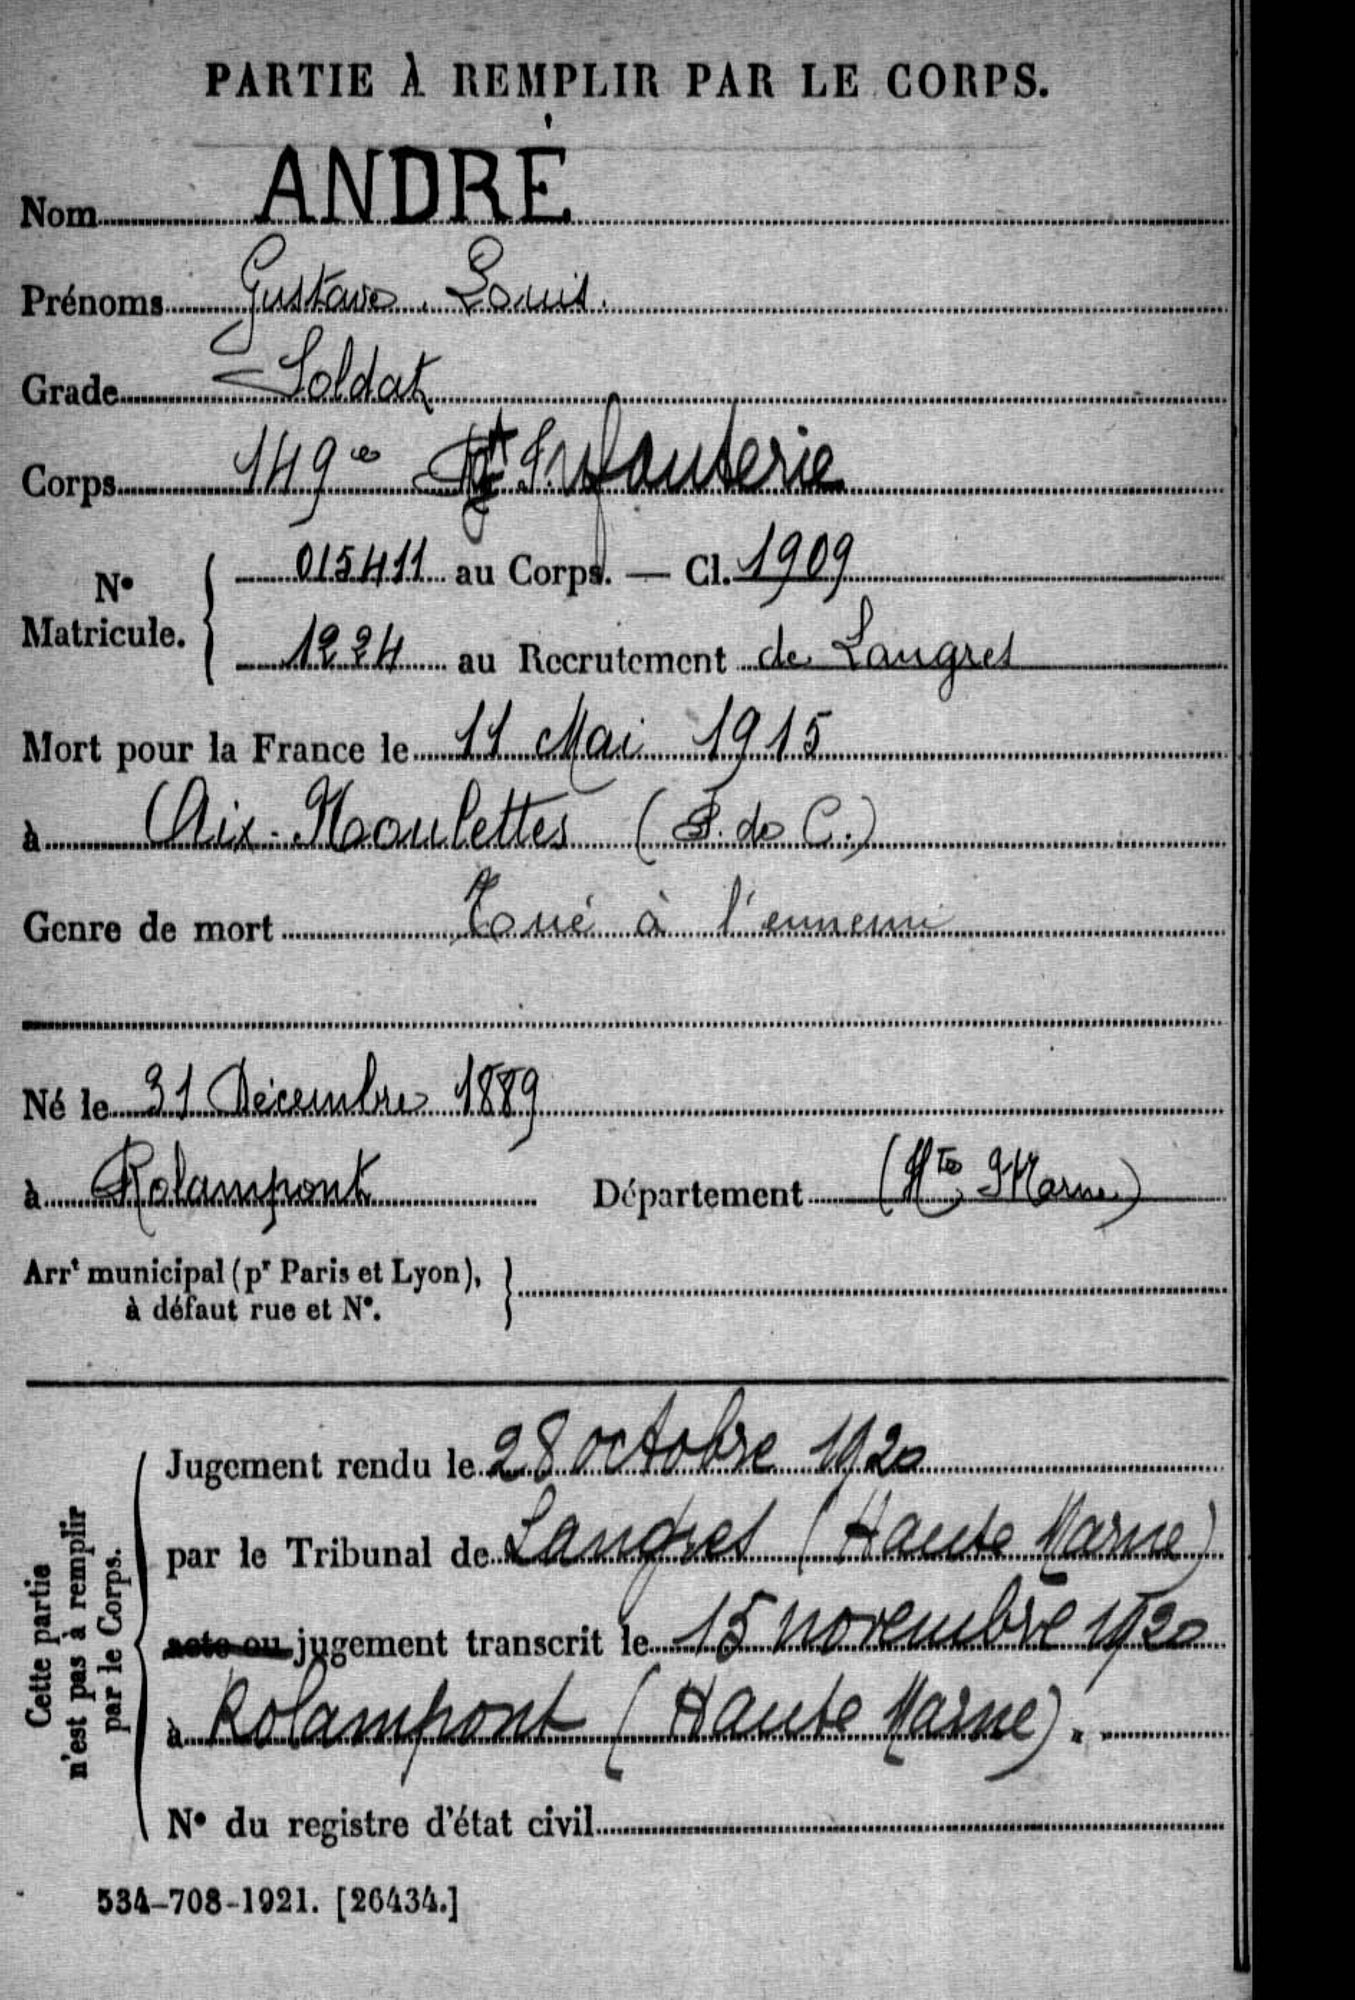 PARTIE À REMPLIR PAR LE CORPS.
Nom ANDRÉ
Prénoms Gustave Louis.
Grade Soldat
Corps 149e Rgt Infanterie
N° Matricule. 015411 au Corps. — Cl. 1909
1224 au Recrutement de Langres
Mort pour la France le 11 Mai 1915
à Aix-Noulettes (P. de C.)
Genre de mort Tué à l'ennemi
Né le 31 Décembre 1889
à Rolampont Département (Hte Marne)
Arrt municipal (pr Paris et Lyon),
à défaut rue et N°.
Cette partie
n'est pas à remplir
par le Corps.
Jugement rendu le 28 octobre 1920
par le Tribunal de Langres (Haute Marne)
acte ou jugement transcrit le 15 novembre 1920
à Rolampont (Haute Marne).
N° du registre d'état civil
534-708-1921. [26434.]